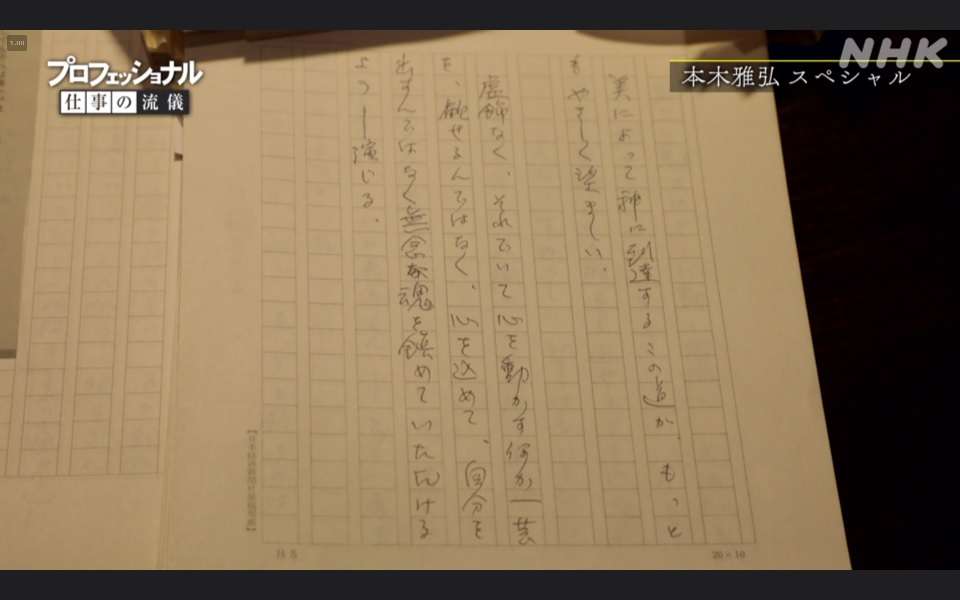 プロフェッショナル
仕事の流儀
NHK
本木雅弘 スペシャル
美によって神に到達するこの道が、もっと
もやさしく望ましい。
虚飾なく、それでいて心を動かす何か一芸
を、魅せるんではなく、心を込めて、自分を
出すんではなく無念な魂を鎮めていただける
よう演じる。
20×10